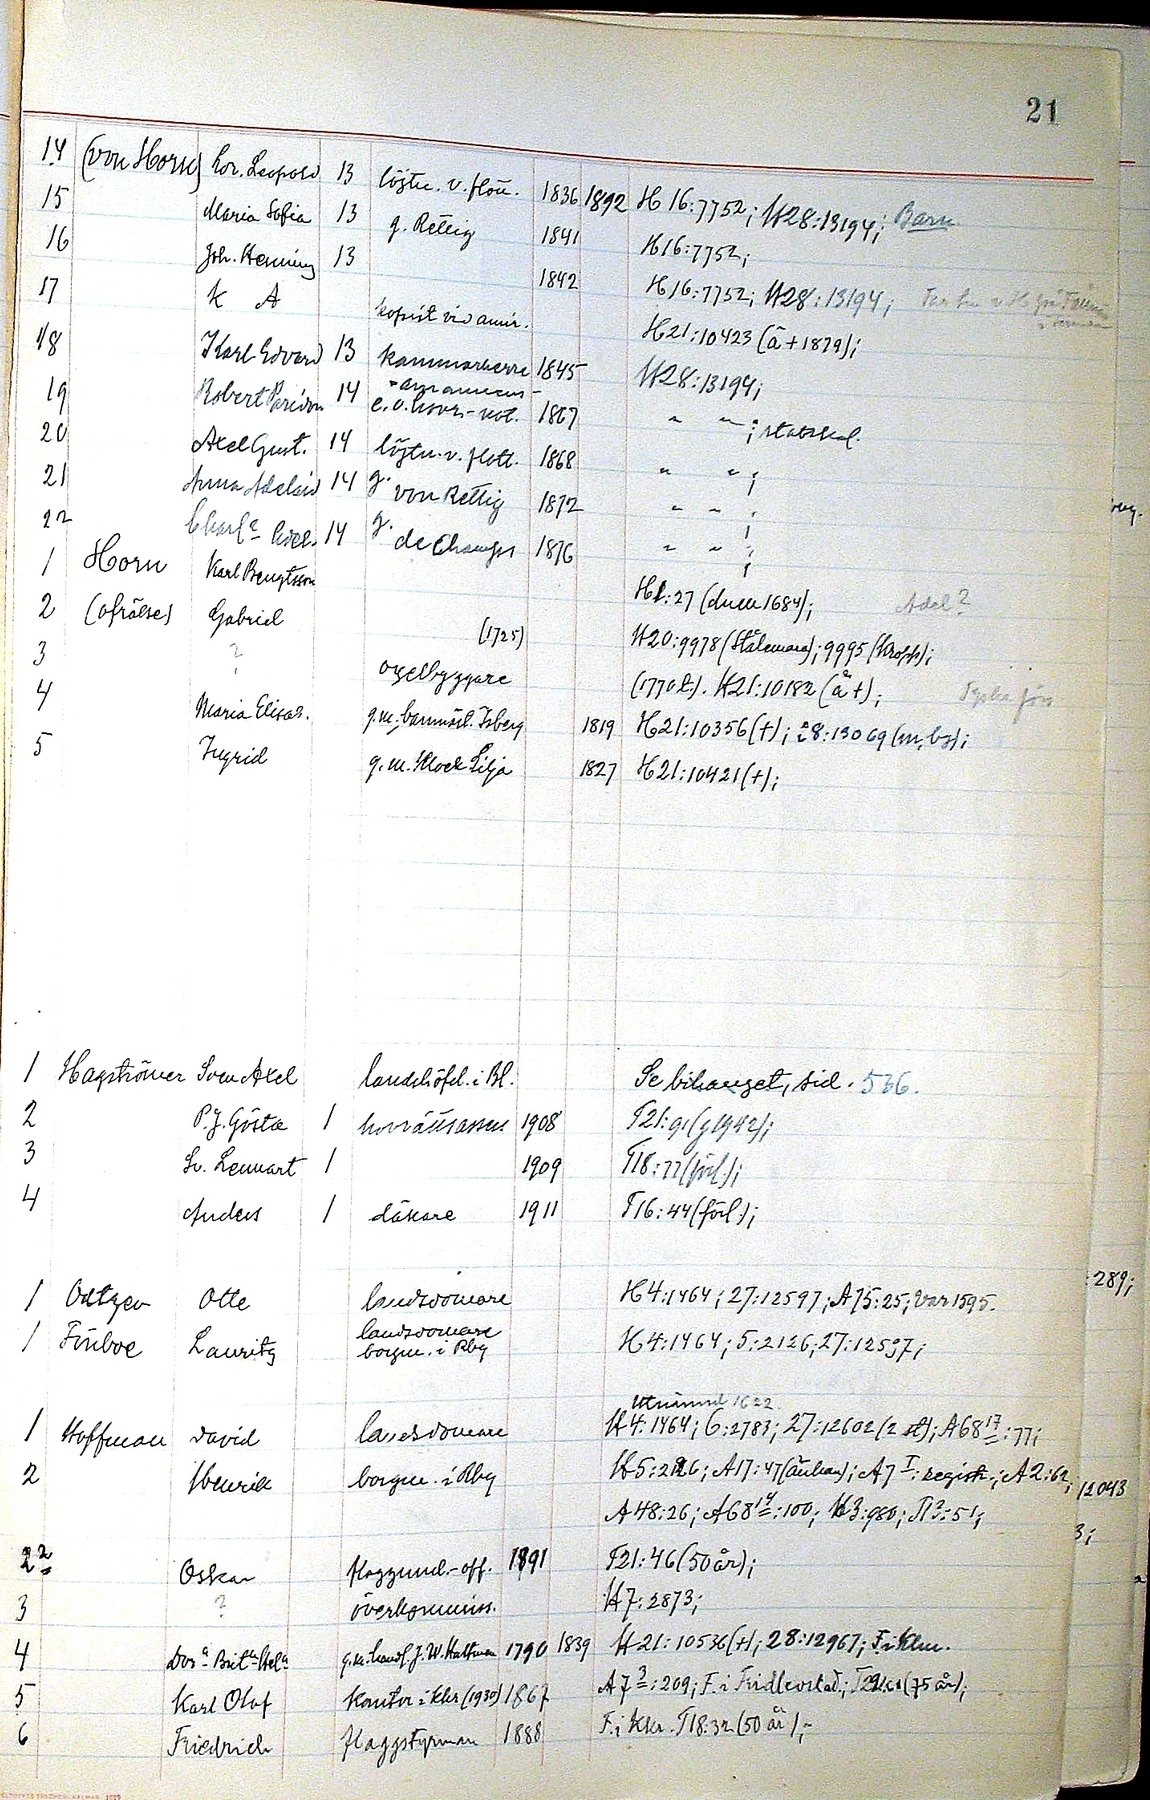 21
14 (von Horn) Lor. Leopold 13 löjtn. v. flott. 1836 1892 H 16:7752; H28:13194; Barn
15 Maria Sofia 13 g. Rettig 1841 H16:7752;
16 Joh. Henning 13 1842 H16:7752; H28:13194;
17 K A kopist vid amir. H21:10423 (å+1879);
18 Karl Edvard 13 kammarherre 1845 H28:13194;
19 Robert 14 e.o. hovr.-not. 1867 " " ;
20 Axel Gust. 14 löjtn. v. flott. 1868 " " ;
21 Anna Adelaid 14 g. von Rettig 1872 " " ;
22 14 g. 1876 " " ;
1 Horn Karl Bengtsson H1:27 (dum 1684); Adel?
2 (ofrälse) Gabriel (1725) H20:9978 (Stålemara); 9995 (Kropp);
3 ? orgelbyggare (1770 t). H21:10182 (å +);
4 Maria Elisab. g.m. Isberg 1819 H21:10356 (+); 28:13069
5 Ingrid g.m. Klock Lilja 1827 H21:10421 (+);
1 Hagströmer Sven Axel landshöfd. i Bl. Se bihanget, sid. 566.
2 P.J. Gösta 1 hovrättsassess 1908 T21:91 (g 1942);
3 Sv. Lennart 1 1909 T18:77 (förl.);
4 Anders 1 läkare 1911 T16:44 (förl.);
1 Otte landsdomare H4:1464; 27:12597; A75:25; var 1595.
1 Lauritz landsdomare H4:1464; 5:2126; 27:12597;
borgm. i Rby
Utnämnd 1622
1 Hoffman David landsdomare H4:1464; 6:2783; 27:12602 (2 st); A68 17:77;
2 Henrik borgm. i Rby H5:2126; A17:47 (änkan); A7 I: registr.; A2:62,
A48:26; A68 14:100; H3:980; T13:51;
22 Oskar flaggund.-off. 1891 T21:46 (50 år);
3 ? överkommiss. H7:2873;
4 g.m. handl. J.W. Hultman 1790 1839 H21:10536 (+); 28:12967; F. i Khn.
5 Karl Olof kantor i Khr (1930) 1867 A7 3:209; F. i Fridlevstad; (75 år);
6 Friedrich flaggstyrman 1888 F. i Khr. T18:32 (50 år);
:289;
12043
3;